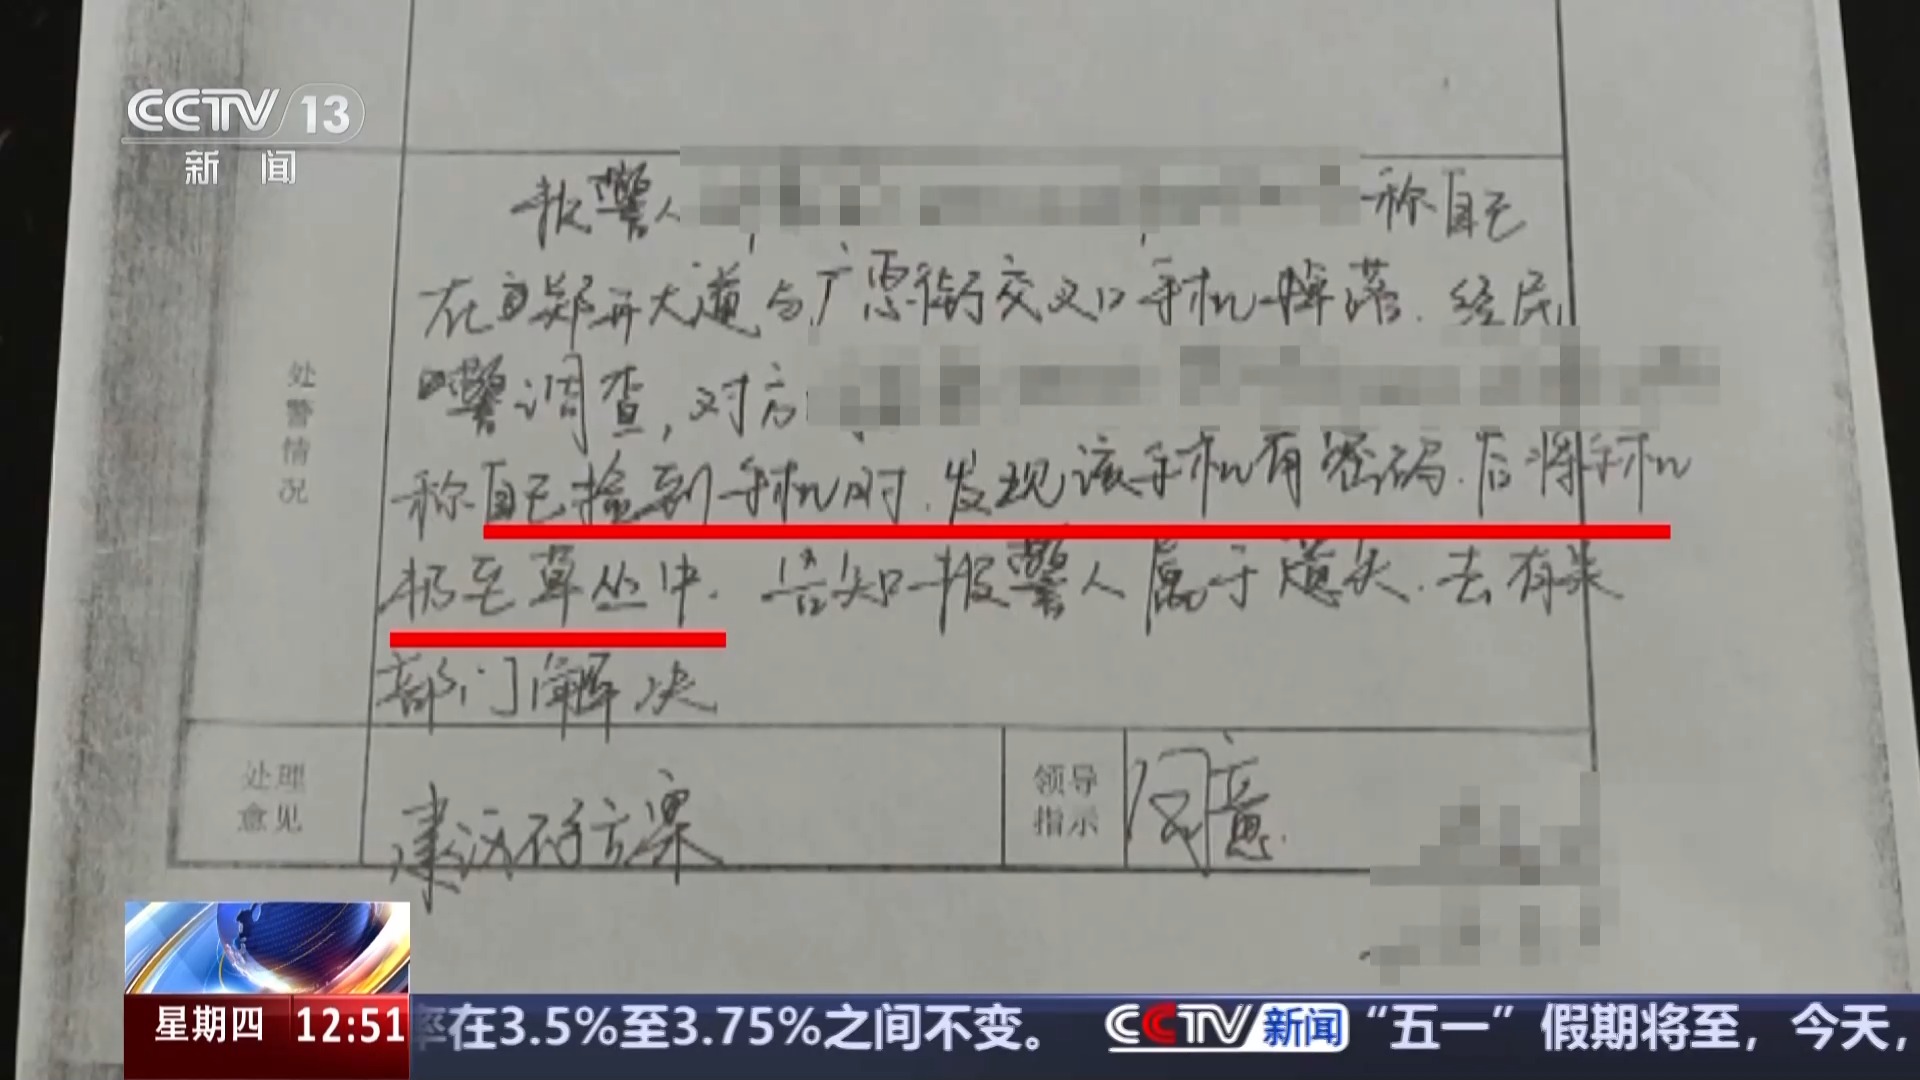 CCTV 13
新闻
报警人 称自己
在郑开大道与广惠街交叉口手机掉落.经民
警调查,对方
称自己捡到手机时.发现该手机有密码.后将手机
扔至草丛中.告知报警人属于遗失.去有关
部门解决
处警情况
处理意见
建议不予立案
领导指示
同意.
星期四 12:51
率在3.5%至3.75%之间不变。 CCTV新闻 “五一”假期将至，今天，